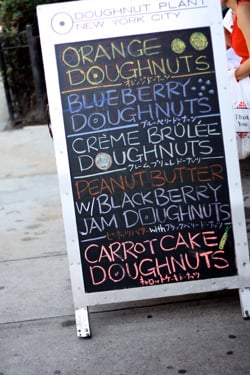 DOUGHNUT PLANT
NEW YORK CITY
ORANGE
DOUGHNUTS
オレンジドーナツ
BLUEBERRY
DOUGHNUTS
ブルーベリードーナツ
CRÈME BRÛLÉE
DOUGHNUTS
クレームブリュレドーナツ
PEANUT BUTTER
W/BLACKBERRY
JAM DOUGHNUTS
ピーナツバター withブラックベリードーナツ
CARROT CAKE
DOUGHNUTS
キャロットケーキドーナツ
Thank
You